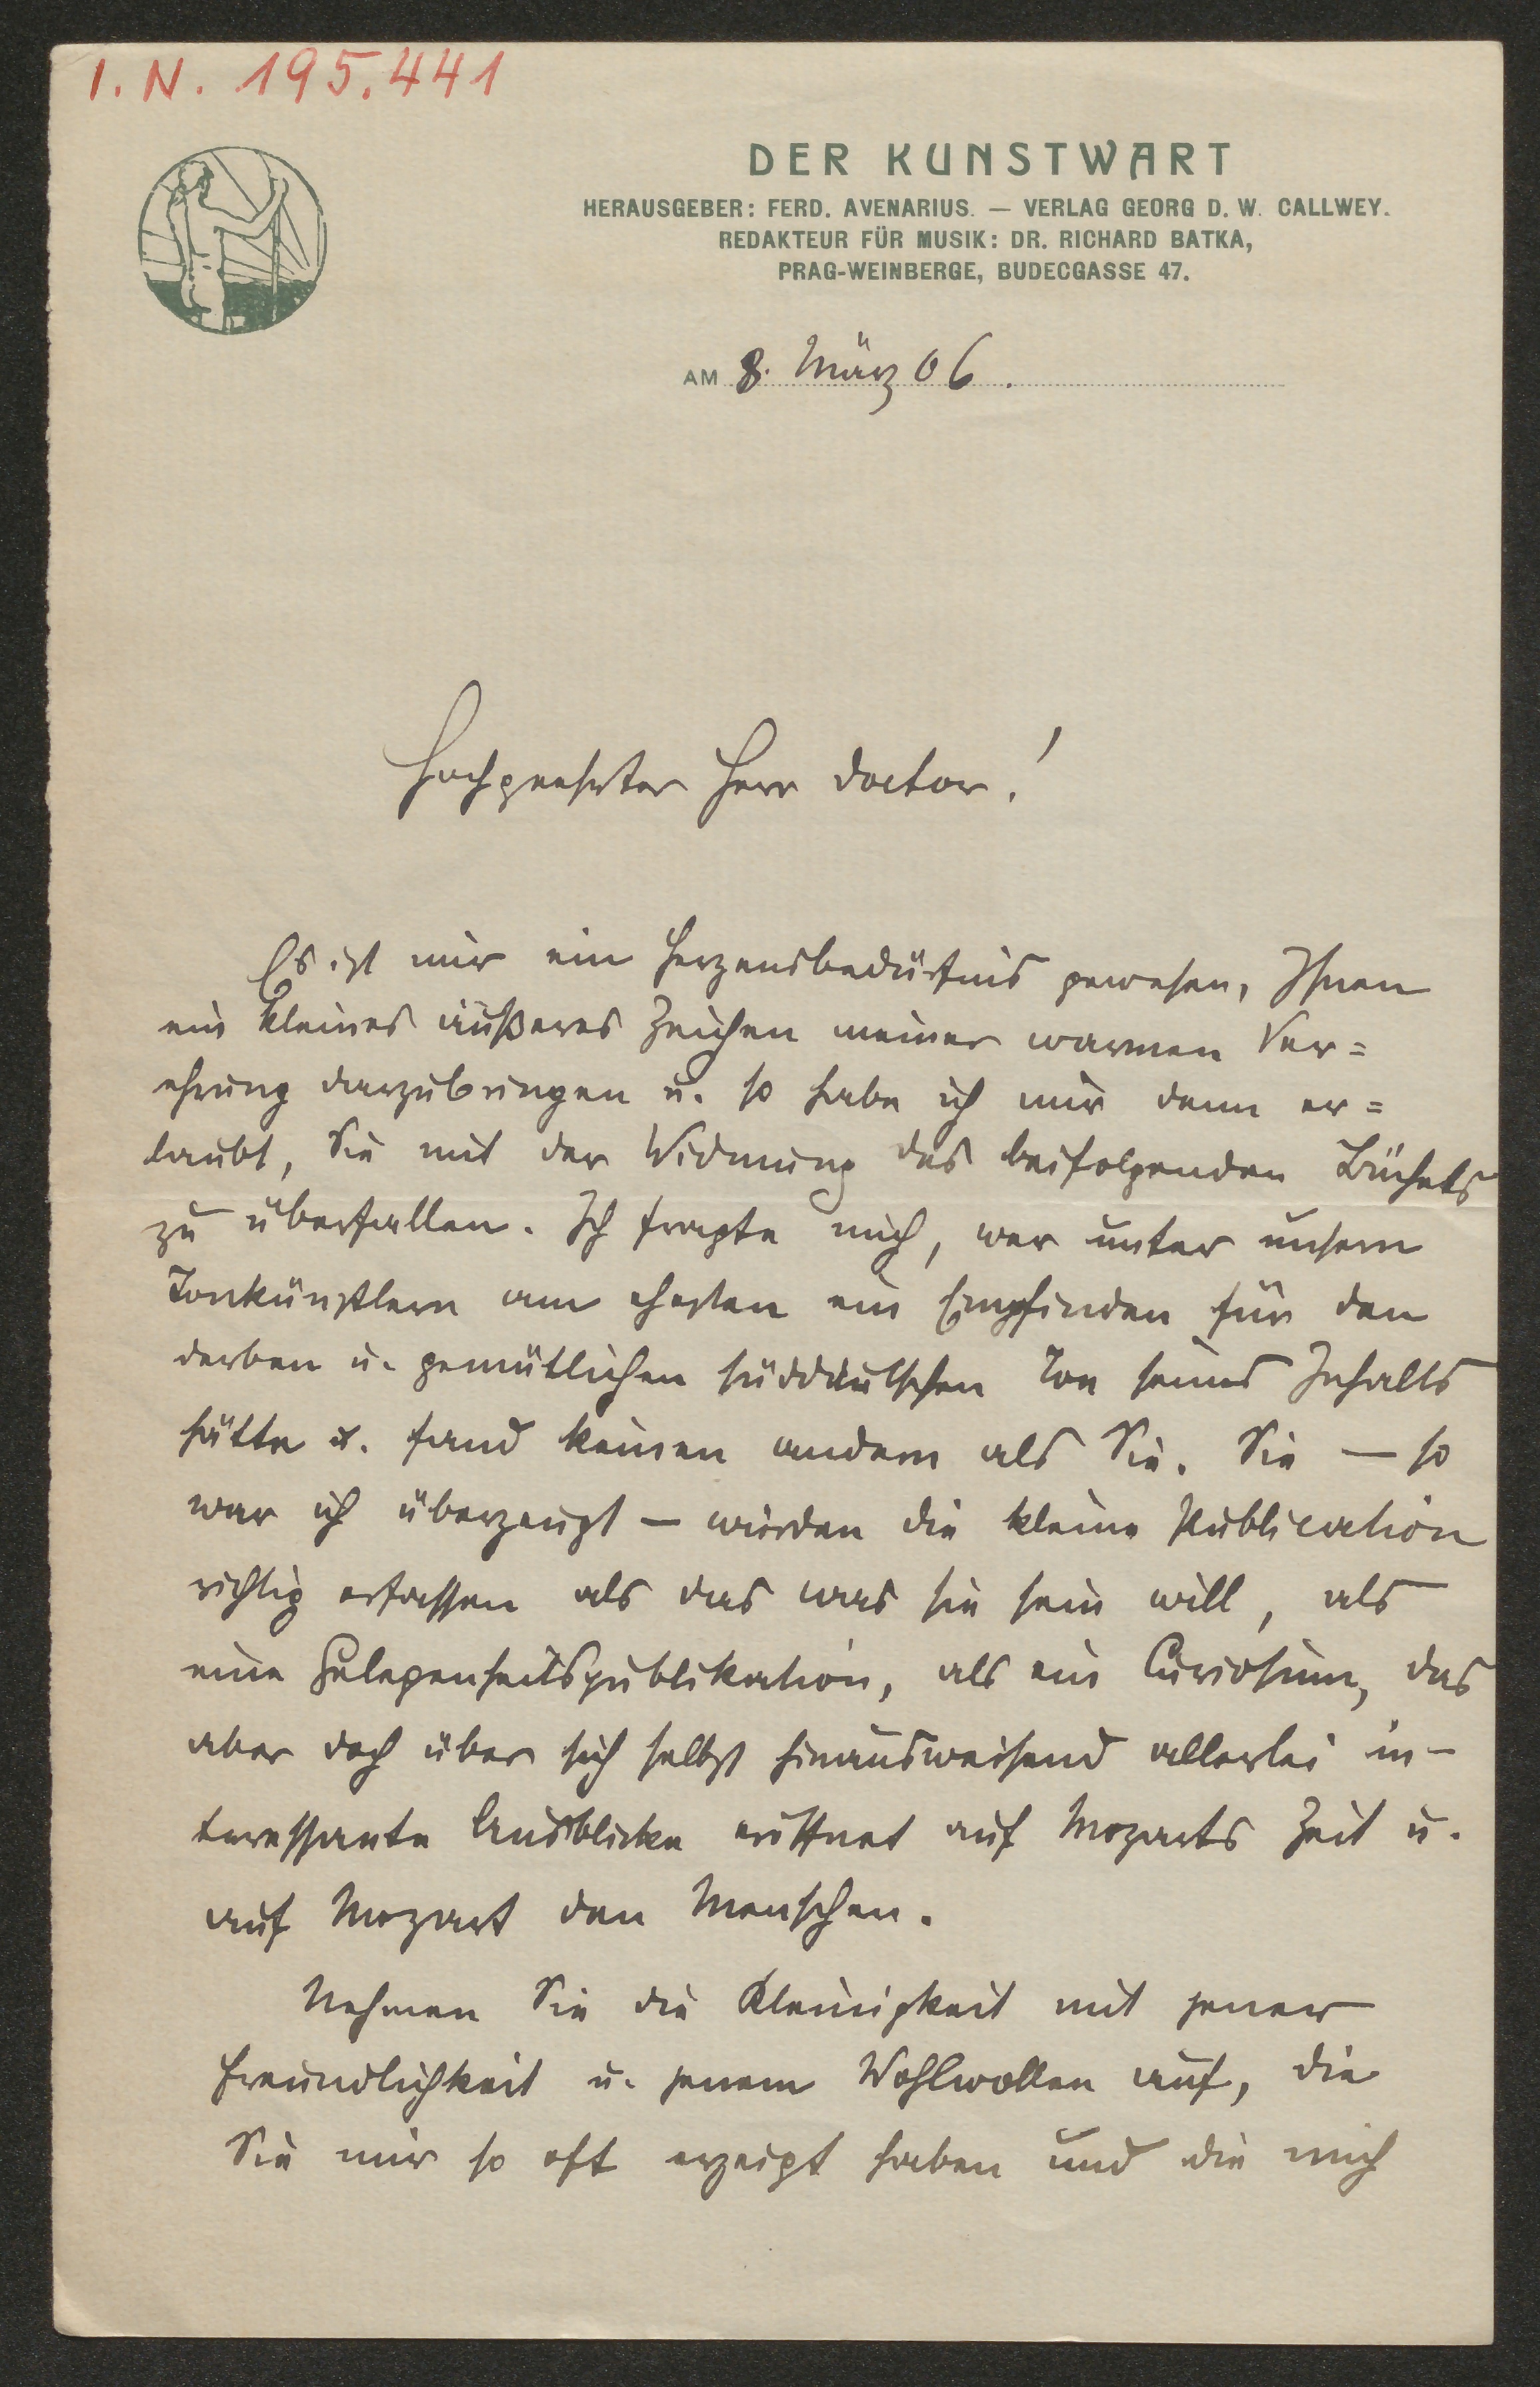 I. N. 195.441
DER KUNSTWART
HERAUSGEBER: FERD. AVENARIUS. — VERLAG GEORG D. W. CALLWEY.
REDAKTEUR FÜR MUSIK: DR. RICHARD BATKA,
PRAG-WEINBERGE, BUDECGASSE 47.
AM 8. März 06.
Hochgeehrter Herr Doctor!
Es ist mir ein Herzensbedürfnis gewesen, Ihnen
ein kleines äußeres Zeichen meiner warmen Ver=
ehrung darzubringen u. so habe ich mir denn er=
laubt, Sie mit der Widmung des beifolgenden Büchels
zu überfallen. Ich fragte mich, wer unter unsern
Tonkünstlern am ehesten ein Empfinden für den
derben u. gemütlichen süddeutschen Ton seines Inhalts
hätte u. fand keinen andern als Sie. Sie — so
war ich überzeugt — würden die kleine Publication
richtig erfassen als das was sie sein will, als
eine Gelegenheitspublikation, als ein Curiosum, das
aber doch über sich selbst hinausweisend allerlei in-
teressante Ausblicke eröffnet auf Mozarts Zeit u.
auf Mozart den Menschen.
Nehmen Sie die Kleinigkeit mit jener
Freundlichkeit u. jenem Wohlwollen auf, die
Sie mir so oft erzeigt haben und die mich